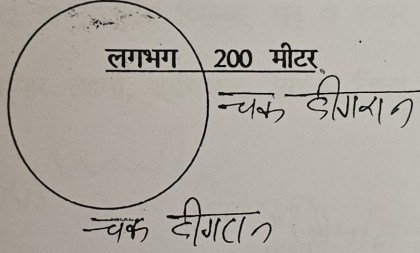 लगभग 200 मीटर
चक डीगरान
चक डीगरान